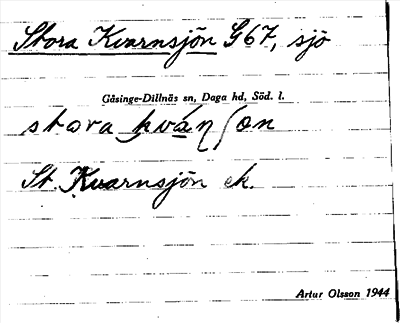 Stora Kvarnsjön G67, sjö
Gåsinge-Dillnäs sn, Daga hd, Söd. l.
stora kvá̱ɳʃon
St. Kvarnsjön ek.
Artur Olsson 1944